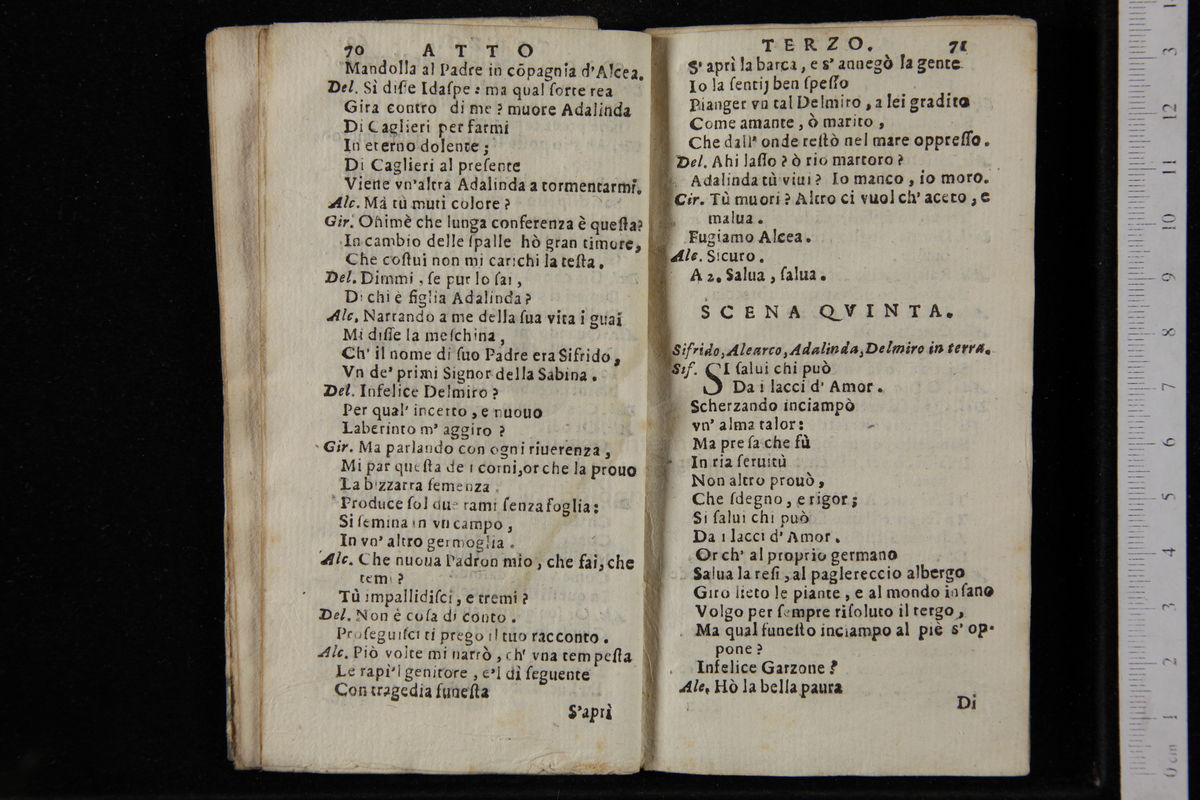 70 ATTO
Mandolla al Padre in cõpagnia d'Alcea.
Del. Sì diſſe Idaſpe: ma qual ſorte rea
Gira contro di me? muore Adalinda
Di Caglieri per farmi
In eterno dolente;
Di Caglieri al preſente
Viene vn'altra Adalinda a tormentarmi.
Alc. Mà tù muti colore?
Gir. Ohimè che lunga conferenza è queſta?
In cambio delle ſpalle hò gran timore,
Che coſtui non mi carichi la teſta.
Del. Dimmi, ſe pur lo ſai,
Di chi è figlia Adalinda?
Alc. Narrando a me della ſua vita i guai
Mi diſſe la meſchina,
Ch' il nome di ſuo Padre era Sifrido,
Vn de' primi Signor della Sabina.
Del. Infelice Delmiro?
Per qual' incerto, e nuouo
Laberinto m' aggiro?
Gir. Ma parlando con ogni riuerenza,
Mi par queſta de i corni, or che la prouo
La bizzarra ſemenza.
Produce ſol due rami ſenza foglia:
Si ſemina in vn campo,
In vn' altro germoglia.
Alc. Che nuoua Padron mio, che fai, che
temi?
Tù impallidiſci, e tremi?
Del. Non è coſa di conto.
Proſeguiſci ti prego il tuo racconto.
Alc. Piò volte mi narrò, ch' vna tempeſta
Le rapì'l genitore, e'l dì ſeguente
Con tragedia funeſta
S'aprì
TERZO. 71
S' aprì la barca, e s' annegò la gente
Io la ſentij ben ſpeſſo
Pianger vn tal Delmiro, a lei gradito
Come amante, ò marito,
Che dall' onde reſtò nel mare oppreſſo.
Del. Ahi laſſo? ò rio martoro?
Adalinda tù viui? Io manco, io moro.
Cir. Tù muori? Altro ci vuol ch' aceto, e
malua.
Fugiamo Alcea.
Alc. Sicuro.
A 2. Salua, ſalua.
SCENA QVINTA.
Sifrido, Alearco, Adalinda, Delmiro in terra.
Sif. SI ſalui chi può
Da i lacci d' Amor.
Scherzando inciampò
vn' alma talor:
Ma preſa che fù
In ria ſeruitù
Non altro prouò,
Che ſdegno, e rigor;
Si ſalui chi può
Da i lacci d' Amor.
Or ch' al proprio germano
Salua la reſi, al paglereccio albergo
Giro lieto le piante, e al mondo inſano
Volgo per ſempre riſoluto il tergo,
Ma qual funeſto inciampo al piè s' op-
pone?
Infelice Garzone?
Ale. Hò la bella paura
Di
0 cm 1 2 3 4 5 6 7 8 9 10 11 12 3 1